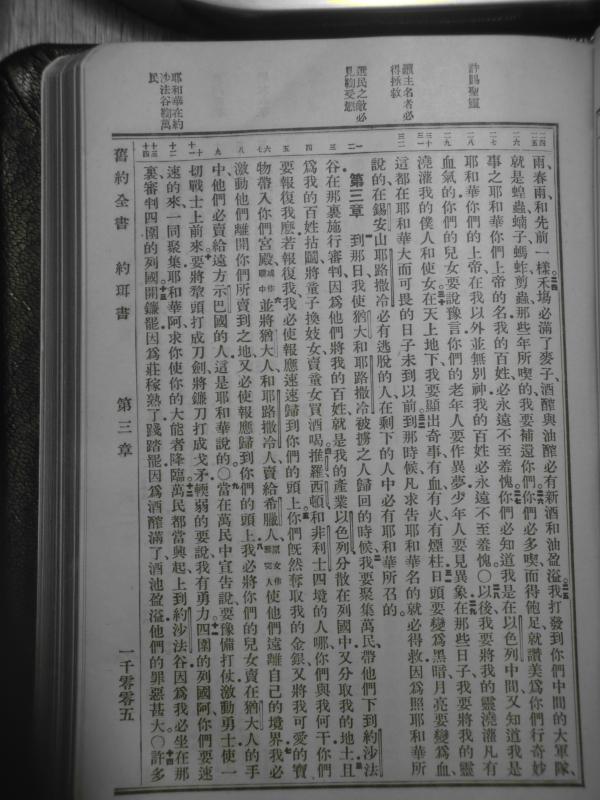 許賜聖靈
籲主名者必
得拯救
選民之敵必
見鞫受懲
耶和華在約
沙法谷鞫萬
民
雨春雨和先前一樣禾場必滿了麥子酒醡與油醡必有新酒和油盈溢我打發到你們中間的大軍隊、
就是蝗蟲蝻子螞蚱剪蟲那些年所喫的我要補還你們你們必多喫而得飽足就讚美爲你們行奇妙
事之耶和華你們上帝的名我的百姓必永遠不至羞愧你們必知道我是在以色列中間又知道我是
耶和華你們的上帝在我以外並無別神我的百姓必永遠不至羞愧〇以後我要將我的靈澆灌凡有
血氣的你們的兒女要說豫言你們的老年人要作異夢少年人要見異象在那些日子我要將我的靈
澆灌我的僕人和使女在天上地下我要顯出奇事有血有火有煙柱日頭要變爲黑暗月亮要變爲血
這都在耶和華大而可畏的日子未到以前到那時候凡求告耶和華名的就必得救因爲照耶和華所
說的在錫安山耶路撒冷必有逃脫的人在剩下的人中必有耶和華所召的
第三章 到那日我使猶大和耶路撒冷被擄之人歸回的時候我要聚集萬民帶他們下到約沙法
谷在那裏施行審判因爲他們將我的百姓就是我的產業以色列分散在列國中又分取我的地土且
爲我的百姓拈鬮將童子換妓女賣童女買酒喝推羅西頓和非利士四境的人哪你們與我何干你們
要報復我麼若報復我我必使報應速速歸到你們的頭上你們旣然奪取我的金銀又將我可愛的寶
物帶入你們宮殿或作廟中並將猶大人和耶路撒冷人賣給希臘人使他們遠離自己的境界我必
激動他們離開你們所賣到之地又必使報應歸到你們的頭上我必將你們的兒女賣在猶大人的手
中他們必賣給遠方示巴國的人這是耶和華說的〇當在萬民中宣告說要豫備打仗激動勇士使一
切戰士上前來要將犂頭打成刀劍將鐮刀打成戈矛輭弱的要說我有勇力四圍的列國阿你們要速
速的來一同聚集耶和華阿求你使你的大能者降臨萬民都當興起上到約沙法谷因爲我必坐在那
裏審判四圍的列國開鐮罷因爲莊稼熟了踐踏罷因爲酒醡滿了酒池盈溢他們的罪惡甚大〇許多
舊約全書 約珥書 第三章 一千零零五